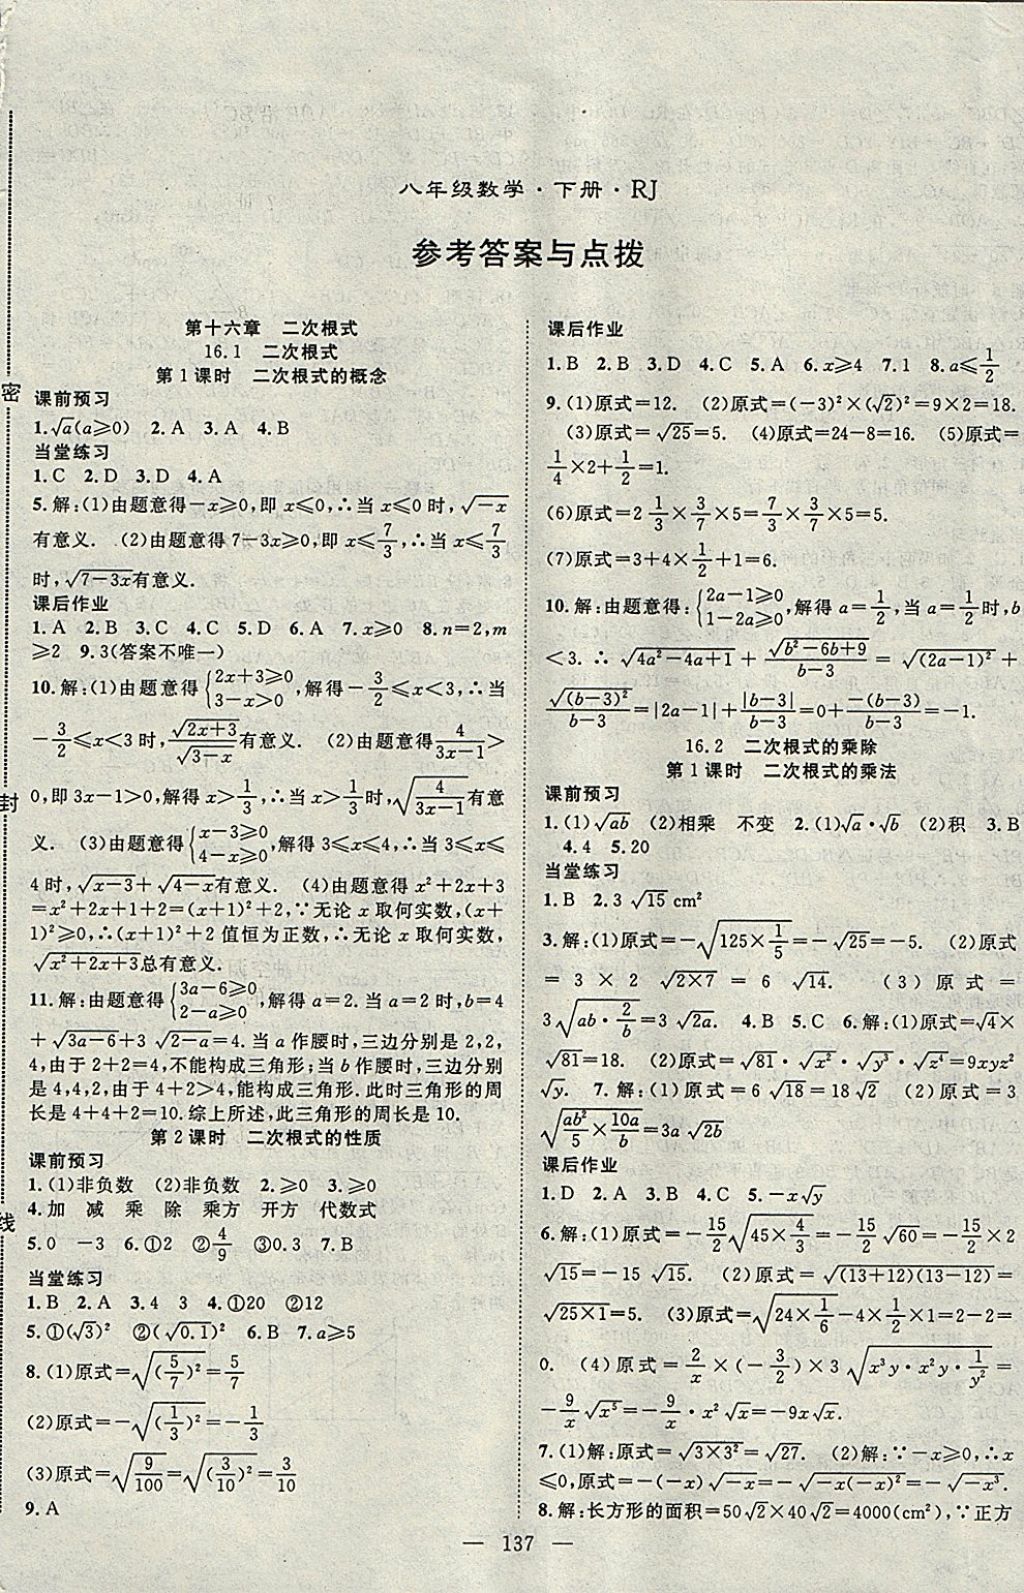 八年级数学·下册·RJ
参考答案与点拨
密
封
线
第十六章 二次根式
16.1 二次根式
第1课时 二次根式的概念
课前预习
1.√a(a⩾0) 2.A 3.A 4.B
当堂练习
1.C 2.D 3.D 4.A
5.解:(1)由题意得-x⩾0,即x⩽0,∴当x⩽0时,√(-x)
有意义. (2)由题意得7-3x⩾0,即x⩽7/3,∴当x⩽7/3
时,√(7-3x)有意义.
课后作业
1.A 2.B 3.C 4.C 5.D 6.A 7.x⩾0 8.n=2,m
⩾2 9.3(答案不唯一)
10.解:(1)由题意得{2x+3⩾0 3-x>0,解得-3/2⩽x<3,∴当
-3/2⩽x<3时,√(2x+3)/√(3-x)有意义. (2)由题意得4/(3x-1)>
0,即3x-1>0,解得x>1/3,∴当x>1/3时,√(4/(3x-1))有意
义. (3)由题意得{x-3⩾0 4-x⩾0,解得3⩽x⩽4,∴当3⩽x⩽
4时,√(x-3)+√(4-x)有意义. (4)由题意得x²+2x+3
=x²+2x+1+2=(x+1)²+2,∵无论x取何实数,(x+
1)²⩾0,∴(x+1)²+2值恒为正数,∴无论x取何实数,
√(x²+2x+3)总有意义.
11.解:由题意得{3a-6⩾0 2-a⩾0,解得a=2.当a=2时,b=4
+√(3a-6)+3√(2-a)=4.当a作腰时,三边分别是2,2,
4,由于2+2=4,不能构成三角形;当b作腰时,三边分别
是4,4,2,由于4+2>4,能构成三角形.此时三角形的周
长是4+4+2=10.综上所述,此三角形的周长是10.
第2课时 二次根式的性质
课前预习
1.(1)非负数 (2)非负数 2.⩾0 3.⩾0
4.加 减 乘 除 乘方 开方 代数式
5.0 -3 6.①2 ②4/9 ③0.3 7.B
当堂练习
1.B 2.A 3.4 3 4.①20 ②12
5.①(√3)² ②(√0.1)² 6.B 7.a⩾5
8.(1)原式=√((5/7)²)=5/7
(2)原式=-√((1/3)²)=-1/3
(3)原式=√(9/100)=√((3/10)²)=3/10
9.A
课后作业
1.B 2.B 3.D 4.C 5.A 6.x⩾4 7.1 8.a⩽1/2
9.(1)原式=12. (2)原式=(-3)²×(√2)²=9×2=18.
(3)原式=√25=5. (4)原式=24-8=16. (5)原式=
1/4×2+1/2=1.
(6)原式=2 1/3×3/7×5=7/3×3/7×5=5.
(7)原式=3+4×1/2+1=6.
10.解:由题意得:{2a-1⩾0 1-2a⩾0,解得a=1/2,当a=1/2时,b
<3.∴√(4a²-4a+1)+√(b²-6b+9)/(b-3)=√((2a-1)²)+
√((b-3)²)/(b-3)=|2a-1|+|b-3|/(b-3)=0+-(b-3)/(b-3)=-1.
16.2 二次根式的乘除
第1课时 二次根式的乘法
课前预习
1.(1)√(ab) (2)相乘 不变 2.(1)√a·√b (2)积 3.B
4.4 5.20
当堂练习
1.B 2.3√15 cm²
3.解:(1)原式=-√(125×1/5)=-√25=-5. (2)原式
=3×2√(2×7)=6√14. (3)原式=
3√(ab·2/b)=3√(2a). 4.B 5.C 6.解:(1)原式=√4×
√81=18. (2)原式=√81·√(x²)·√(y³)·√(z⁴)=9xyz²
√y. 7.解:(1)原式=6√18=18√2 (2)原式=3
√(ab²/5×10a/b)=3a√(2b)
课后作业
1.D 2.A 3.B 4.C 5.-x√y
6.解:(1)原式=-15/2√(45×4/3)=-15/2√60=-15/2×2
√15=-15√15. (2)原式=√((13+12)(13-12))=
√(25×1)=5. (3)原式=√(24×1/6)-4×1/2×1=2-2=
0. (4)原式=2/x×(-3/2)×3√(x³y·x²y·1/y²)=
-9/x√(x⁵)=-9/x·x²√x=-9x√x.
7.(1)解:原式=√(3×3²)=√27. (2)解:∵-x⩾0,∴x
⩽0,原式=-(-x)√(-x)=-√(-x(-x)²)=-√(-x³).
8.解:长方形的面积=50√2×40√2=4000(cm²),∵正方
— 137 —